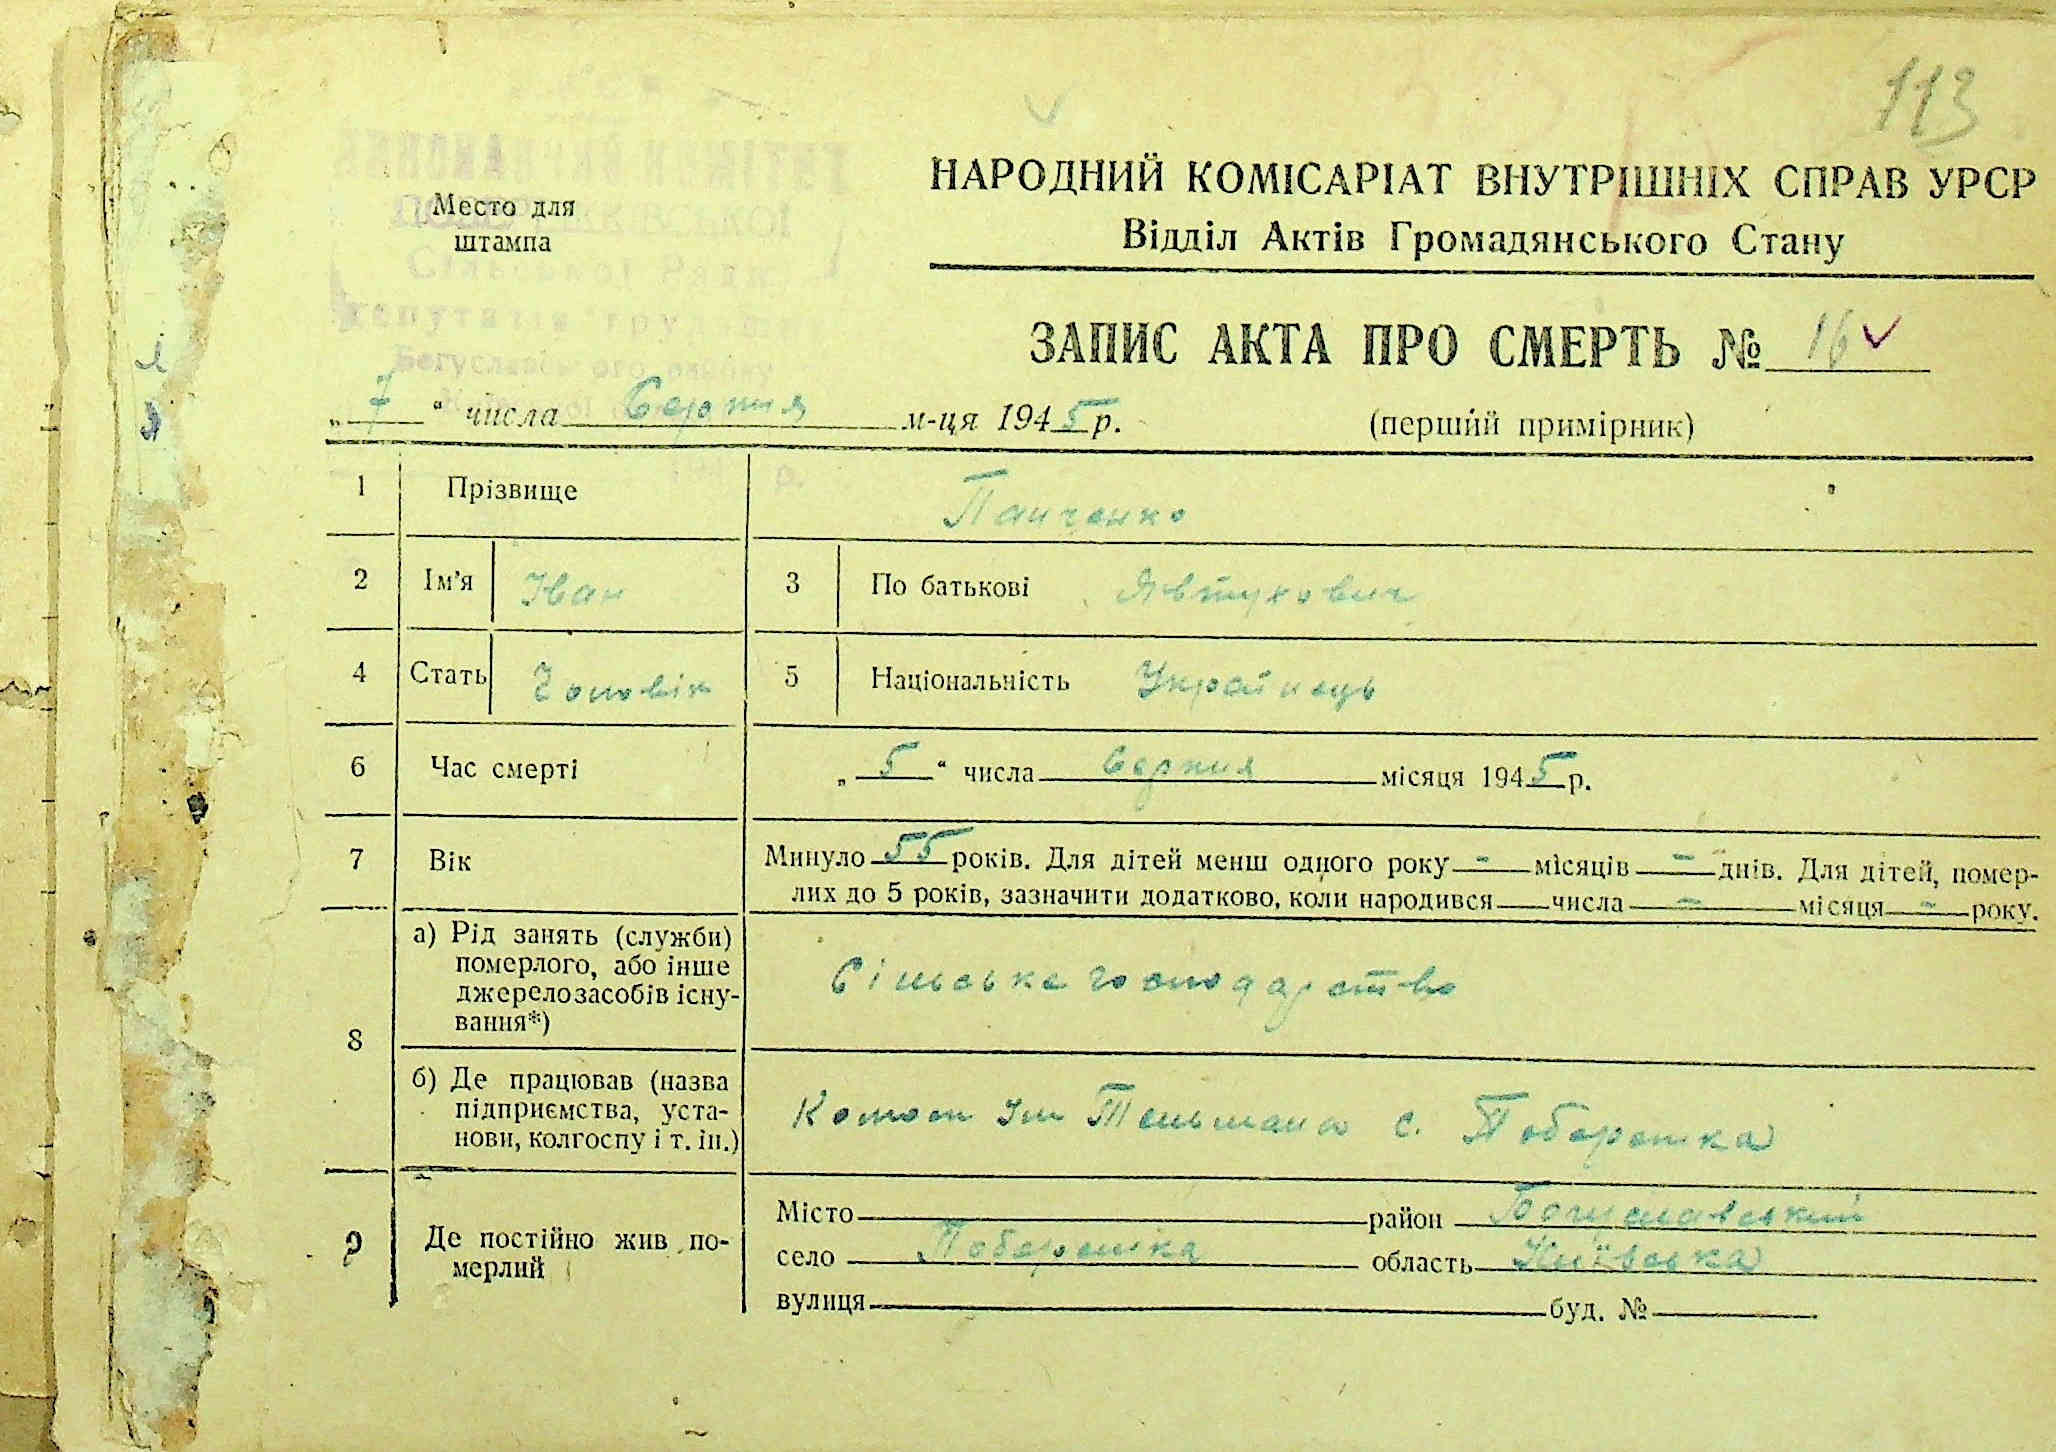 113
Место для
штампа
НАРОДНИЙ КОМІСАРІАТ ВНУТРІШНІХ СПРАВ УРСР
Відділ Актів Громадянського Стану
Сільської Ради
депутатів трудящих
Богуславського району
ЗАПИС АКТА ПРО СМЕРТЬ № 16
„ 7 “ числа Серпня м-ця 1945 р. (перший примірник)
1 Прізвище Панченко
2 Ім'я Іван 3 По батькові Явтухович
4 Стать Чоловік 5 Національність Українець
6 Час смерті „ 5 “ числа Серпня місяця 1945 р.
7 Вік Минуло 55 років. Для дітей менш одного року - місяців - днів. Для дітей, помер-
лих до 5 років, зазначити додатково, коли народився числа - місяця - року.
8 а) Рід занять (служби)
померлого, або інше
джерелозасобів існу-
вання*)
Сільське господарство
б) Де працював (назва
підприємства, уста-
нови, колгоспу і т. ін.)
Колгосп Ім Тельмана с. Побережка
9 Де постійно жив по-
мерлий
Місто район Богуславський
село Побережка область Київська
вулиця буд. №